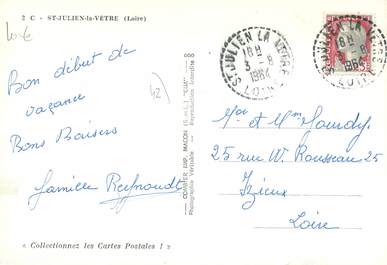 2 C - ST-JULIEN-la-VÊTRE (Loire)
Loire
Bon début de
vacance
Bons Baisers
famille Reynaudt
« Collectionnez les Cartes Postales ! »
COMBIER IMP. MACON (S.-&-L.) "CIM"
Photographie Véritable - Reproduction Interdite
ST JULIEN LA VETRE
18 H
3 - 8
1964
LOIRE
18 H
3 - 8
1964
LOIRE
Mr et Mme Gaudy
25 rue W. Rousseau 25
Izieux
Loire